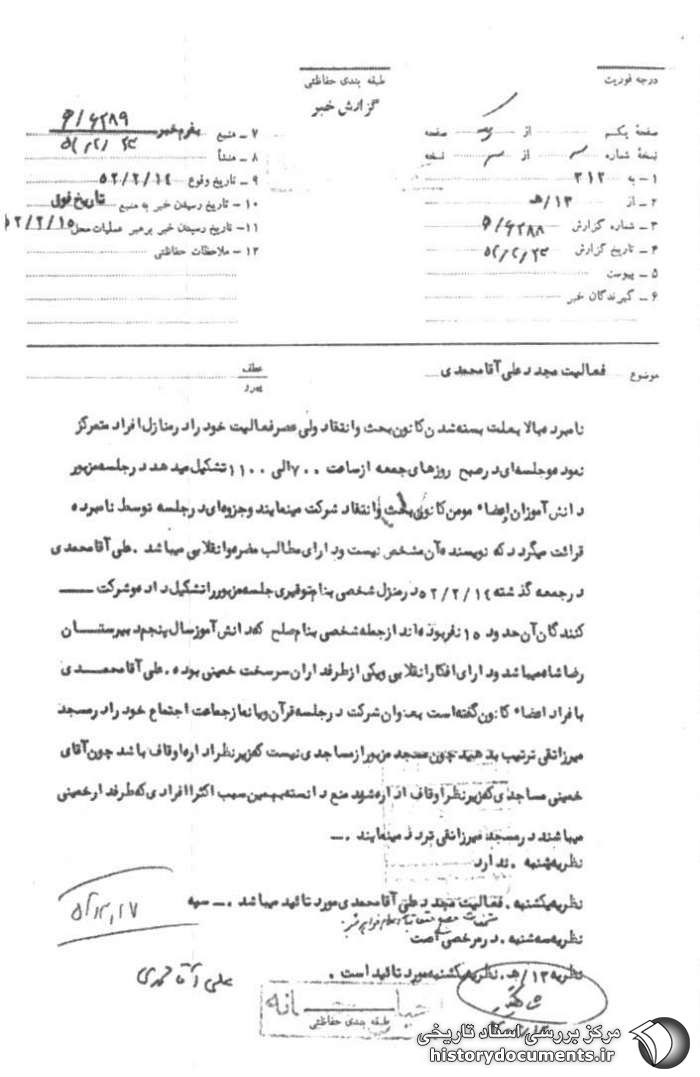 درجه فوریت
طبقه بندی حفاظتی
گزارش خبر
صفحهٔ یکم از صفحه
نسخهٔ شماره از نسخه
۱ – به ۳۱۲
۲ – از ۱۳/هـ
۳ – شماره گزارش ۶۲۸۸/
۴ – تاریخ گزارش ۵۲/۲/۲۳
۵ – پیوست
۶ – گیرندگان خبر
۷ – منبع ۶۲۸۹/
۸ – منشأ
۹ – تاریخ وقوع ۵۲/۲/۱۴
۱۰ – تاریخ رسیدن خبر به منبع تاریخ فوق
۱۱ – تاریخ رسیدن خبر برهبر عملیات محل ۵۲/۲/۱۵
۱۲ – ملاحظات حفاظتی
موضوع فعالیت مجدد علی آقامحمدی
عطف
پیرو
نامبرده بالا بعلت بسته شدن کانون بحث و انتقاد ولی عصر فعالیت خود را در منازل افراد متمرکز
نموده و جلسه ای در صبح روزهای جمعه از ساعت ۷۰۰ الی ۱۱۰۰ تشکیل میدهد در جلسه مزبور
دانش آموزان اعضاء مومن کانون بحث وانتقاد شرکت مینمایند وجزوه ای در جلسه توسط نامبرده
قرائت میگردد که نویسنده آن مشخص نیست ودارای مطالب مضره وانقلابی میباشد . علی آقامحمدی
در جمعه گذشته ۵۲/۲/۱۴ در منزل شخصی بنام توقیری جلسه مزبور را تشکیل داده وشرکت
کنندگان آن حدود ۱۵ نفر بوده اند از جمله شخصی بنام صلح که دانش آموز سال پنجم دبیرستان
رضا شاه میباشد ودارای افکار انقلابی ویکی از طرفداران سرسخت خمینی بوده . علی آقامحمدی
با افراد اعضاء کانون گفته است بعنوان شرکت در جلسه قرآن ویا نماز جماعت اجتماع خود را در مسجد
میرزاتقی ترتیب بدهید چون مسجد مزبور از مساجدی نیست که زیر نظر اداره اوقاف باشد چون آقای
خمینی مساجدی که زیر نظر اوقاف اداره شوند منع دانسته بهمین سبب اکثرا افرادی که طرفدار خمینی
میباشند در مسجد میرزاتقی تردد مینمایند . ــ
نظریه شنبه . ندارد
نظریه یکشنبه . فعالیت مجدد علی آقامحمدی مورد تائید میباشد . ــ سیه
نظریه سه شنبه . در مرخصی است
نظریه ۱۳/هـ . نظریه یکشنبه مورد تائید است .
علی آقامحمدی
طبقه بندی حفاظتی
مرکز بررسی اسناد تاریخی
historydocuments.ir